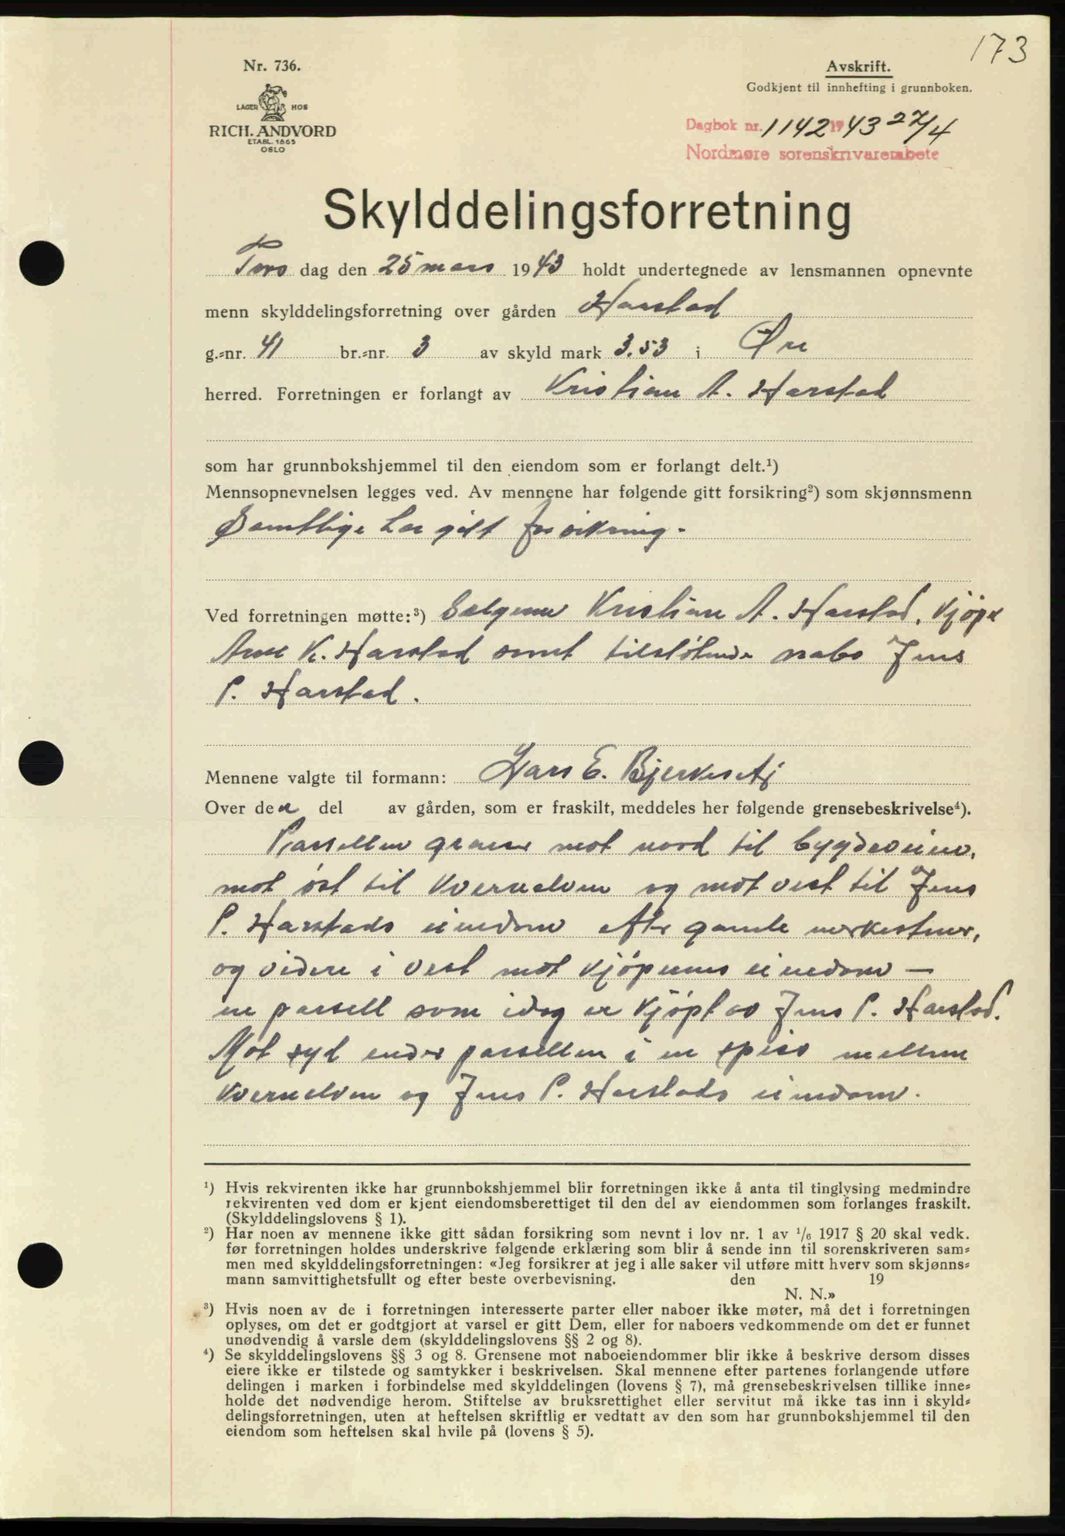 173
Nr. 736.
LAGER HOS
RICH. ANDVORD
ETABL. 1865
OSLO
Avskrift.
Godkjent til innhefting i grunnboken.
Dagbok nr. 1142 1943 27/4
Nordmøre sorenskrivarembete
Skylddelingsforretning
Tors dag den 25 mars 1943 holdt undertegnede av lensmannen opnevnte
menn skylddelingsforretning over gården Harstad
g.=nr. 41 br.=nr. 3 av skyld mark 3.53 i Øre
herred. Forretningen er forlangt av Kristian A. Harstad
som har grunnbokshjemmel til den eiendom som er forlangt delt.¹)
Mennsopnevnelsen legges ved. Av mennene har følgende gitt forsikring²) som skjønnsmenn
Samtlige har gitt forsikring.
Ved forretningen møtte:³) Selgeren Kristian A. Harstad, kjøper
Arne K. Harstad samt tilstøtende nabo Jens
P. Harstad.
Mennene valgte til formann: Lars E. Bjerkeset
Over den del av gården, som er fraskilt, meddeles her følgende grensebeskrivelse⁴).
Parsellen grenser mot nord til bygdeveien,
mot øst til Kvernelven og mot vest til Jens
P. Harstads eiendom efter gamle merkestener,
og videre i vest mot kjøperens eiendom —
en parsell som idag er kjøpt av Jens P. Harstad.
Mot syd ender parsellen i en spiss mellem
Kvernelven og Jens P. Harstads eiendom.
¹) Hvis rekvirenten ikke har grunnbokshjemmel blir forretningen ikke å anta til tinglysing medmindre
rekvirenten ved dom er kjent eiendomsberettiget til den del av eiendommen som forlanges fraskilt.
(Skylddelingslovens § 1).
²) Har noen av mennene ikke gitt sådan forsikring som nevnt i lov nr. 1 av 1/6 1917 § 20 skal vedk.
før forretningen holdes underskrive følgende erklæring som blir å sende inn til sorenskriveren sam=
men med skylddelingsforretningen: «Jeg forsikrer at jeg i alle saker vil utføre mitt hverv som skjønns=
mann samvittighetsfullt og efter beste overbevisning. den 19
N. N.»
³) Hvis noen av de i forretningen interesserte parter eller naboer ikke møter, må det i forretningen
oplyses, om det er godtgjort at varsel er gitt Dem, eller for naboers vedkommende om det er funnet
unødvendig å varsle dem (skylddelingslovens §§ 2 og 8).
⁴) Se skylddelingslovens §§ 3 og 8. Grensene mot naboeiendommer blir ikke å beskrive dersom disses
eiere ikke er tilstede og samtykker i beskrivelsen. Skal mennene efter partenes forlangende utføre
delingen i marken i forbindelse med skylddelingen (lovens § 7), må grensebeskrivelsen tillike inne=
holde det nødvendige herom. Stiftelse av bruksrettighet eller servitut må ikke tas inn i skyld=
delingsforretningen, uten at heftelsen skriftlig er vedtatt av den som har grunnbokshjemmel til den
eiendom som heftelsen skal hvile på (lovens § 5).